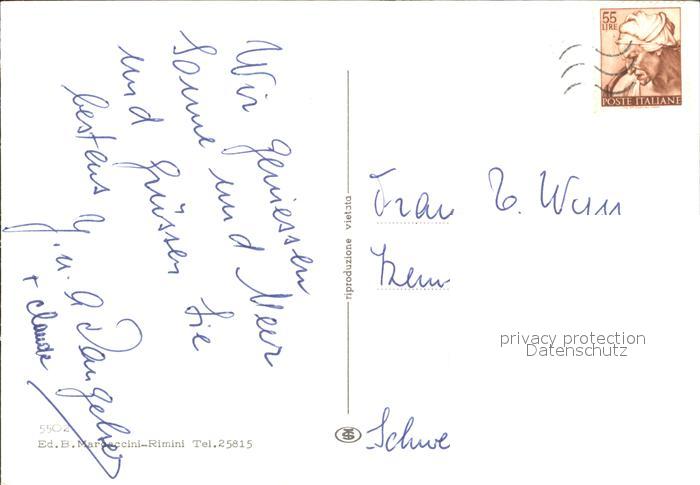 Wir geniessen
Sonne und Meer
und grüssen Sie
bestens
+ Claude
5502
Ed.B. Marcaccini-Rimini Tel.25815
riproduzione vietata
55
LIRE
POSTE ITALIANE
Frau
privacy protection
Datenschutz